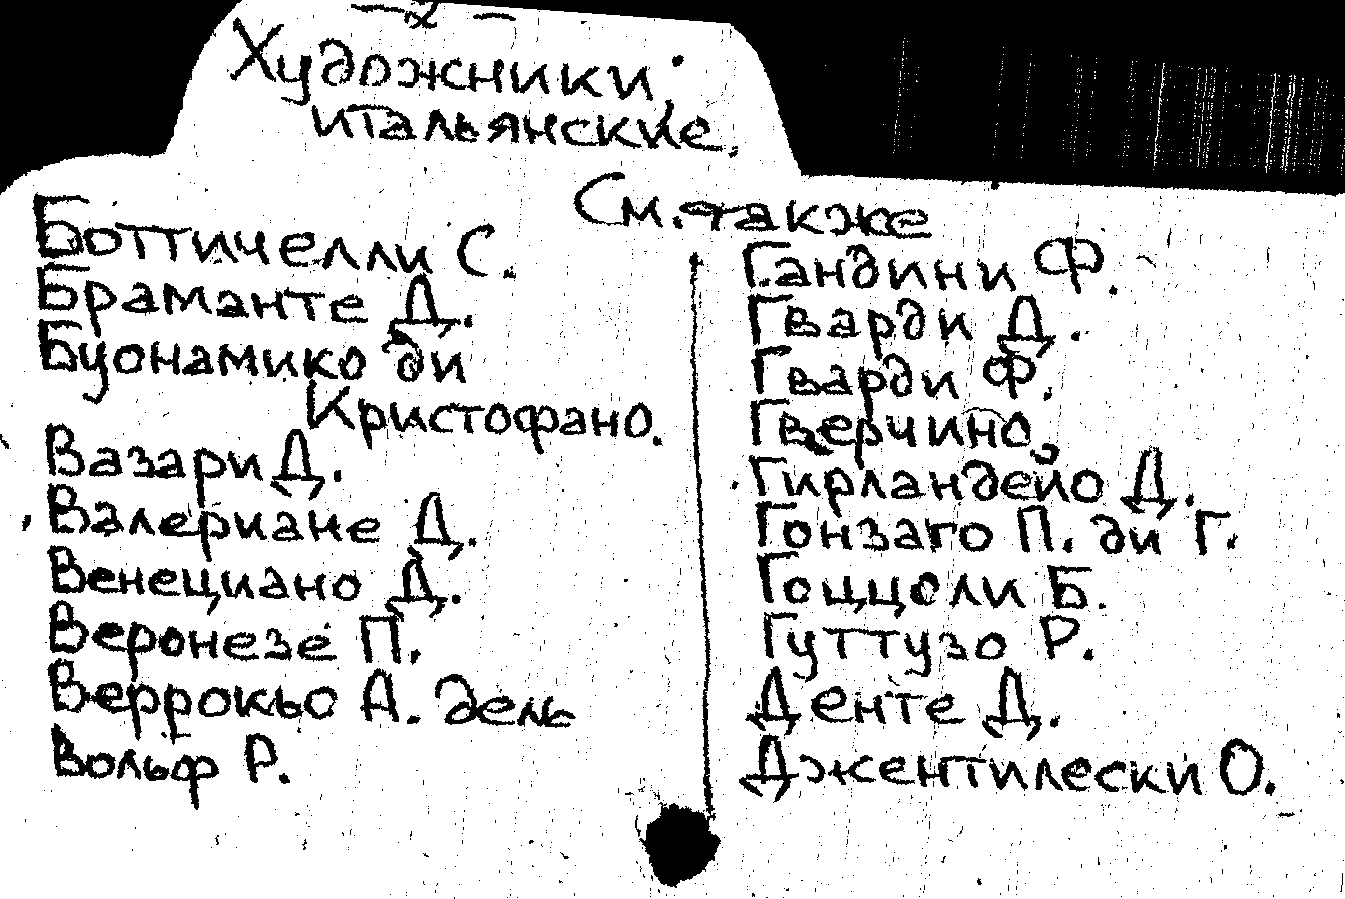 – 2 –
Художники
итальянские.
См. также
Боттичелли С.
Браманте Д.
Буонамико ди
Кристофано.
Вазари Д.
Валериане Д.
Венециано Д.
Веронезе П.
Веррокьо А. дель
Вольф Р.
Гандини Ф.
Гварди Д.
Гварди Ф.
Гверчино
Гирландейо Д.
Гонзаго П. ди Г.
Гоццоли Б.
Гуттузо Р.
Денте Д.
Джентилески О.